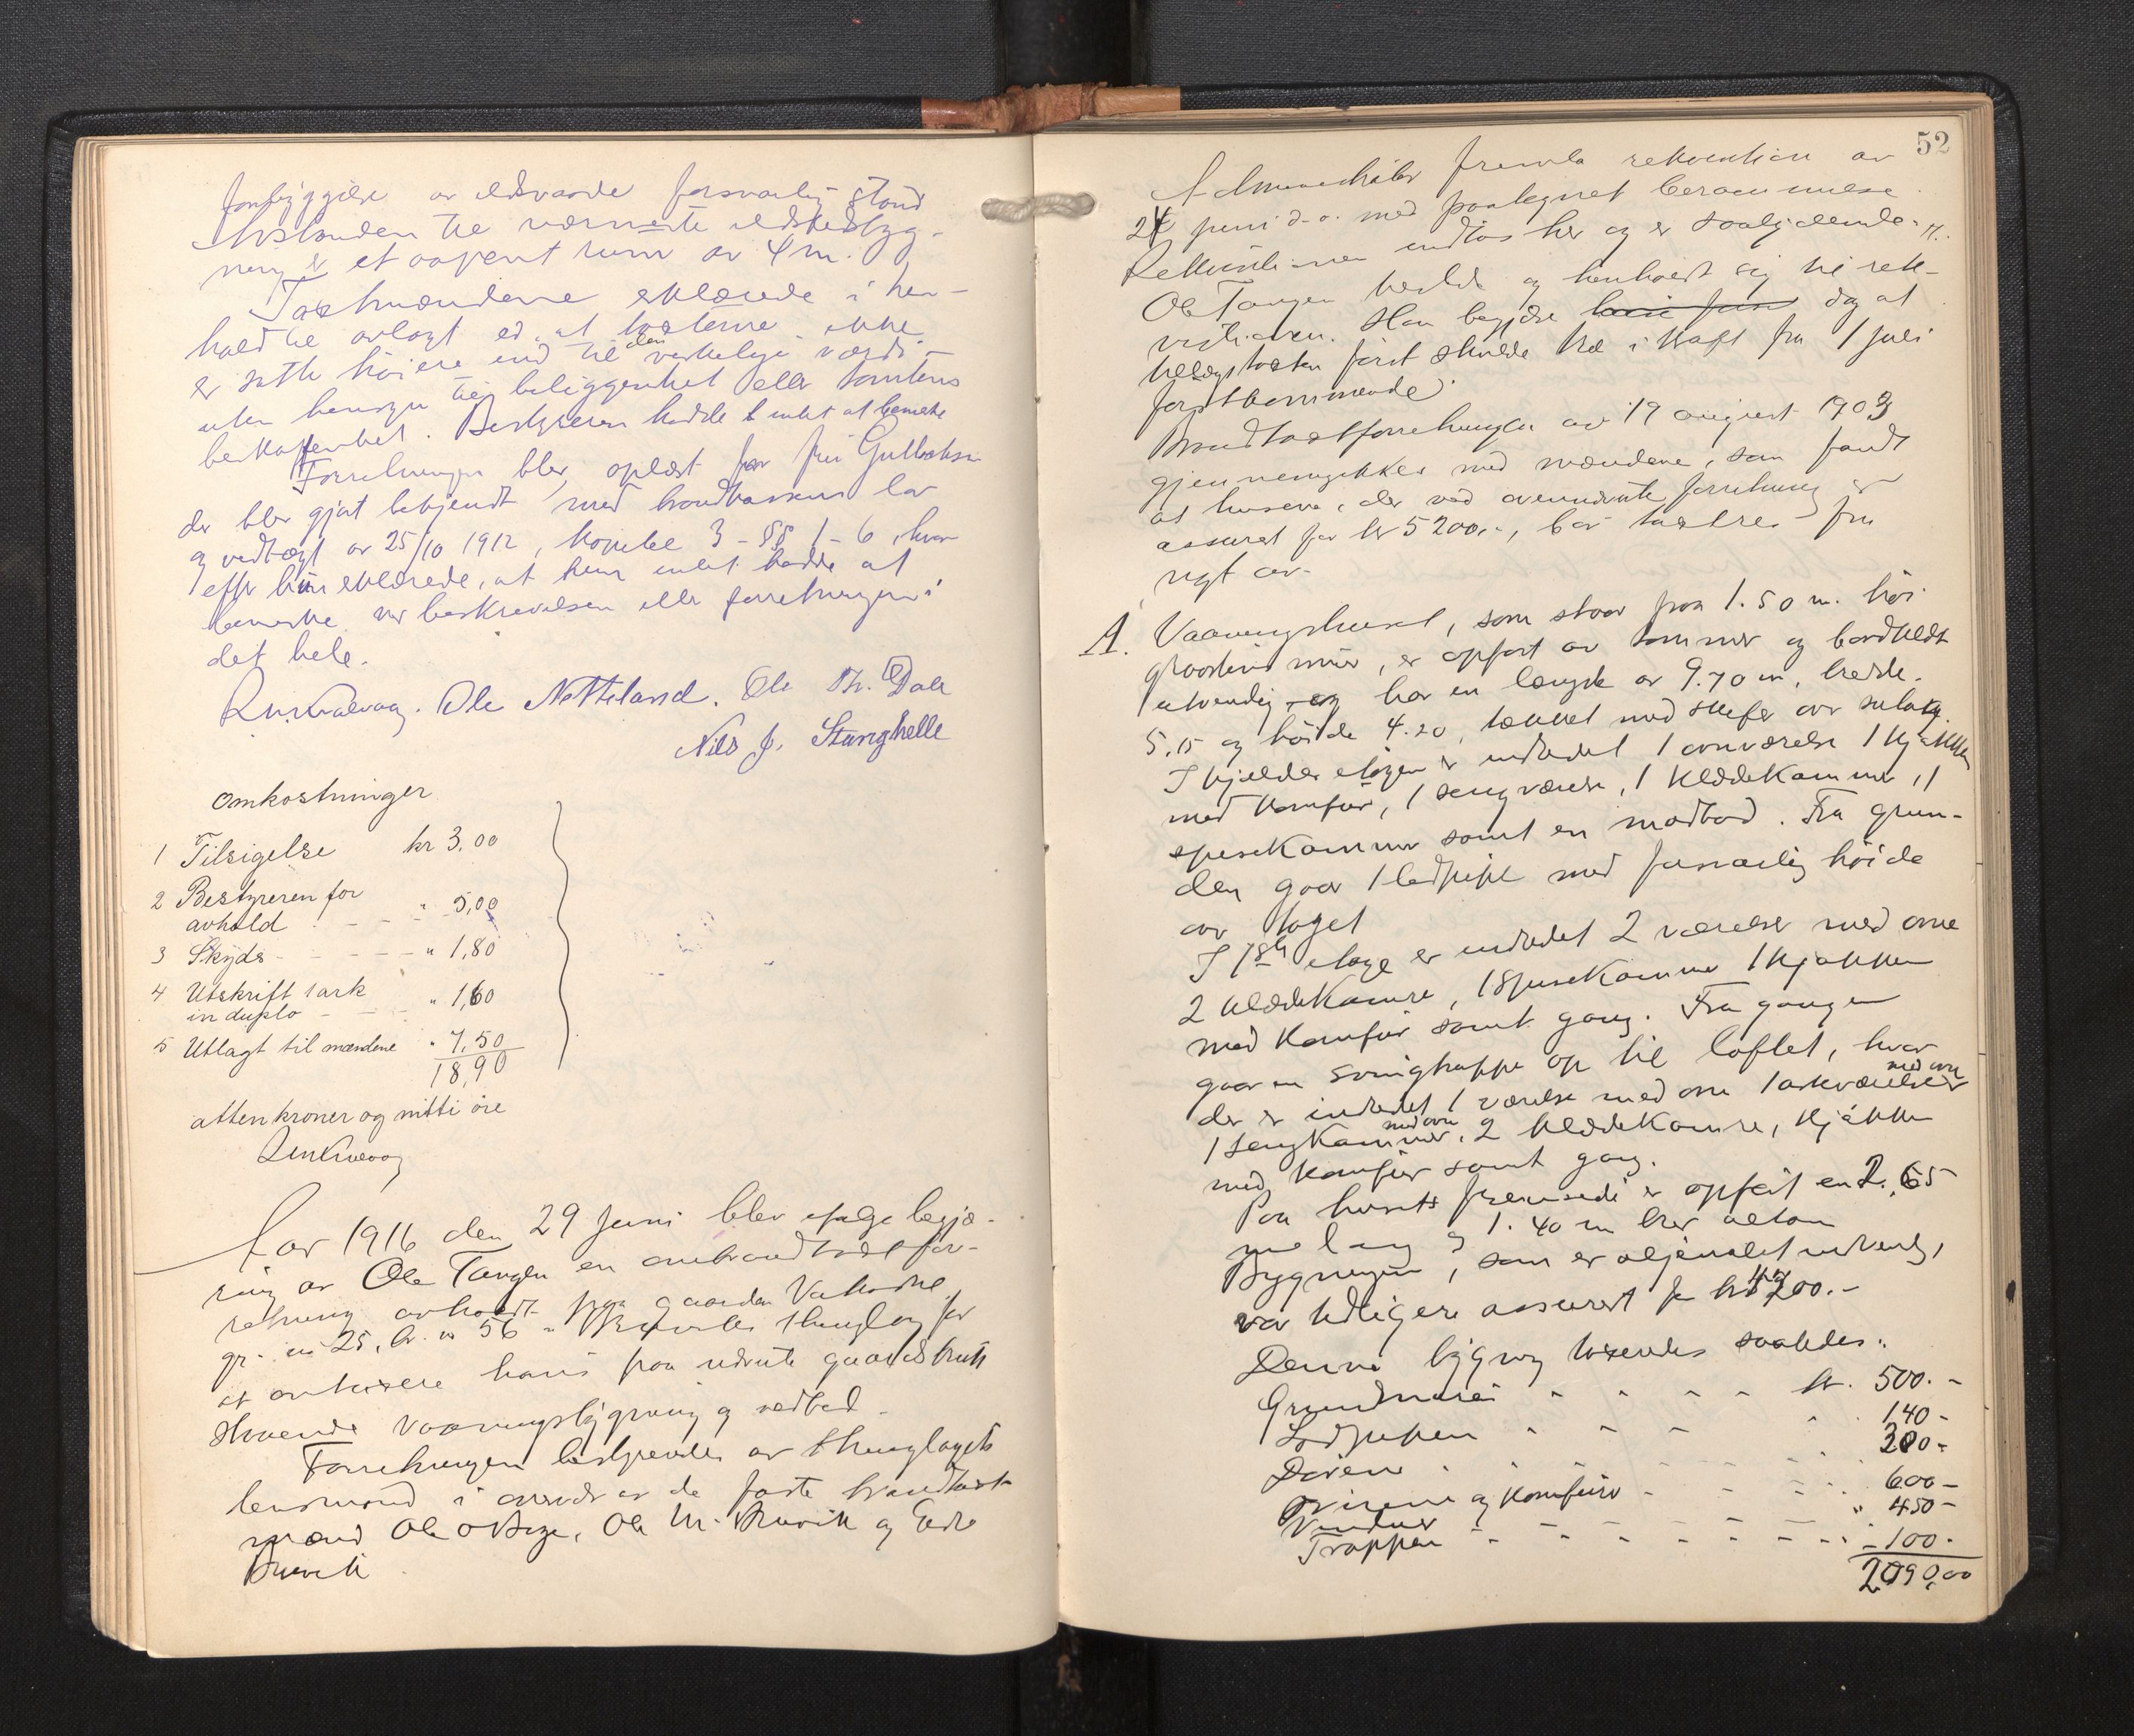 forbyggelse av ildsvaade forsvarlig stand
Avstanden til nærmeste ildstedsbyg-
ning er et aapent rum av 4 m.
Taxtmændene erklærede i hen-
hold til avlagt ed, at taxterne ikke
er satte høiere end til den virkelige værdi
uten hensyn til beliggenhet eller tomtens
beskaffenhet. Bestyreren hadde intet at bemerke
Forretningen blev oplæst for fru
der blev gjort bekjendt med brandkassens lov
og vedtægt av 25/10 1912, kapitel 3 - §§ 1 - 6, hvor
efter hun erklærede, at hun intet hadde at
bemerke ved beskrivelsen eller forretningen i
det hele.
Ole Netteland. Ole Th. Dale
Nils J. Stanghelle
Omkostninger
1 Tilsigelse kr 3,00
2 Bestyreren for
avhold - - " 5,00
3 Skyds - - - - - " 1,80
4 Utskrift 1 ark
in duplo - - - " 1,60
5 Utlagt til mændene " 7,50
18,90
atten kroner og nitti øre
Aar 1916 den 29 juni blev efter begjæ-
ring av Ole Tangen en ombrandtaxtfor-
retning avholdt paa gaarden
gr. nr 25, br. nr 56 i thinglag for
at omtaxere hans paa nævnte gaardsbruk
staaende vaaningsbygning og vedbod.
Forretningen bestyredes av thinglagets
lensmand i overvær av de faste brandtaxt-
mænd Ole O Ole M. Bruvik og
Bruvik
52
Administrator fremla rekvisition av
24 juni d. a. med paategnet berammelse
Rekvisitionen indtas her og er saalydende: "
Ole Tangen og henholdt sig til rek-
visitionen. Han begjærte dog at
tillægstaxten først skulde træ i kraft fra 1 juli
førstkommende
Brandtaxtforretningen av 19 august 1903
gjennemgikkes med mændene, som fandt
at husene, der ved ovennævnte forretning er
assurert for kr 5200,-, bør taxtres fra
nyt av.
A. Vaaningshuset, som staar paa 1.50 m. høi
graastens mur, er opført av tømmer og bordklædt
utvendig og har en længde av 9.70 m, bredde
5.15 og høide 4.20, tækket med skifer over sutak.
I kjelder etagen er indredet 1 ovnværelse 1 kjøkken
med komfur, 1 sengværelse, 1 klædekammer, 1
spisekammer samt en matbod. Fra grun-
den gaar 1 ledpipe med forsvarlig høide
over taget
I 1ste etage er indredet 2 værelser med ovne
2 klædekamre, 1 spisekammer 1 kjøkken
med komfur samt gang. Fra gangen
gaar en svingtrappe op til loftet, hvor
der er indredet 1 værelse med ovn 1 arkværelse med ovn
1 sengkammer med ovn, 2 klædekamre, kjøkken
med komfur samt gang.
Paa husets fremside er opført en 2.65
m lang og 1.40 m bred altan
Bygningen, som er oljemalet utvendig,
var tidligere assurert for kr 4200.-
Denne bygning taxeredes saaledes:
Grundmuren " " " " kr. 500.-
Ledpipen " " " " 140-
Dørene " " 300-
Ovnene og komfur - - - 600-
Vinduer " 450-
Trappen - - - - - - - 100-
2090,00